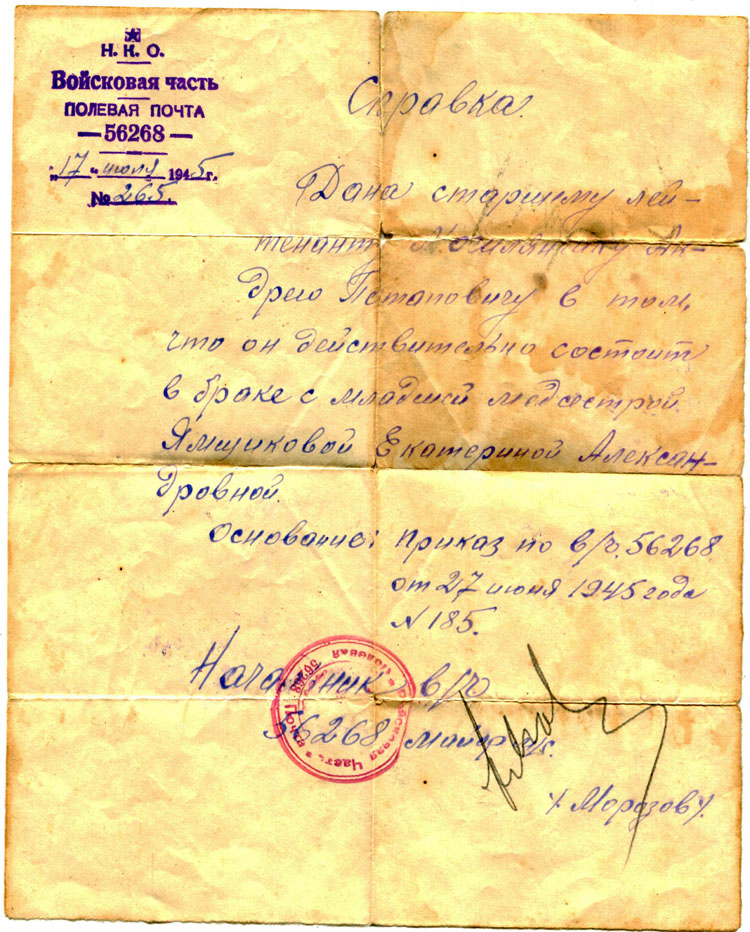 Н. К. О.
Войсковая часть
ПОЛЕВАЯ ПОЧТА
— 56268 —
„17" июля 1945 г.
№ 265.
Справка
Дана старшему лей-
тенанту Ан-
дрею Потаповичу в том,
что он действительно состоит
в браке с младшей медсестрой
Ямщиковой Екатериной Алексан-
дровной.
Основание: Приказ по в/ч. 56268
от 27 июня 1945 года
N 185.
Начальник в/ч
56268 майор
/Морозов/.
Войсковая Часть • Полевая Почта
56268